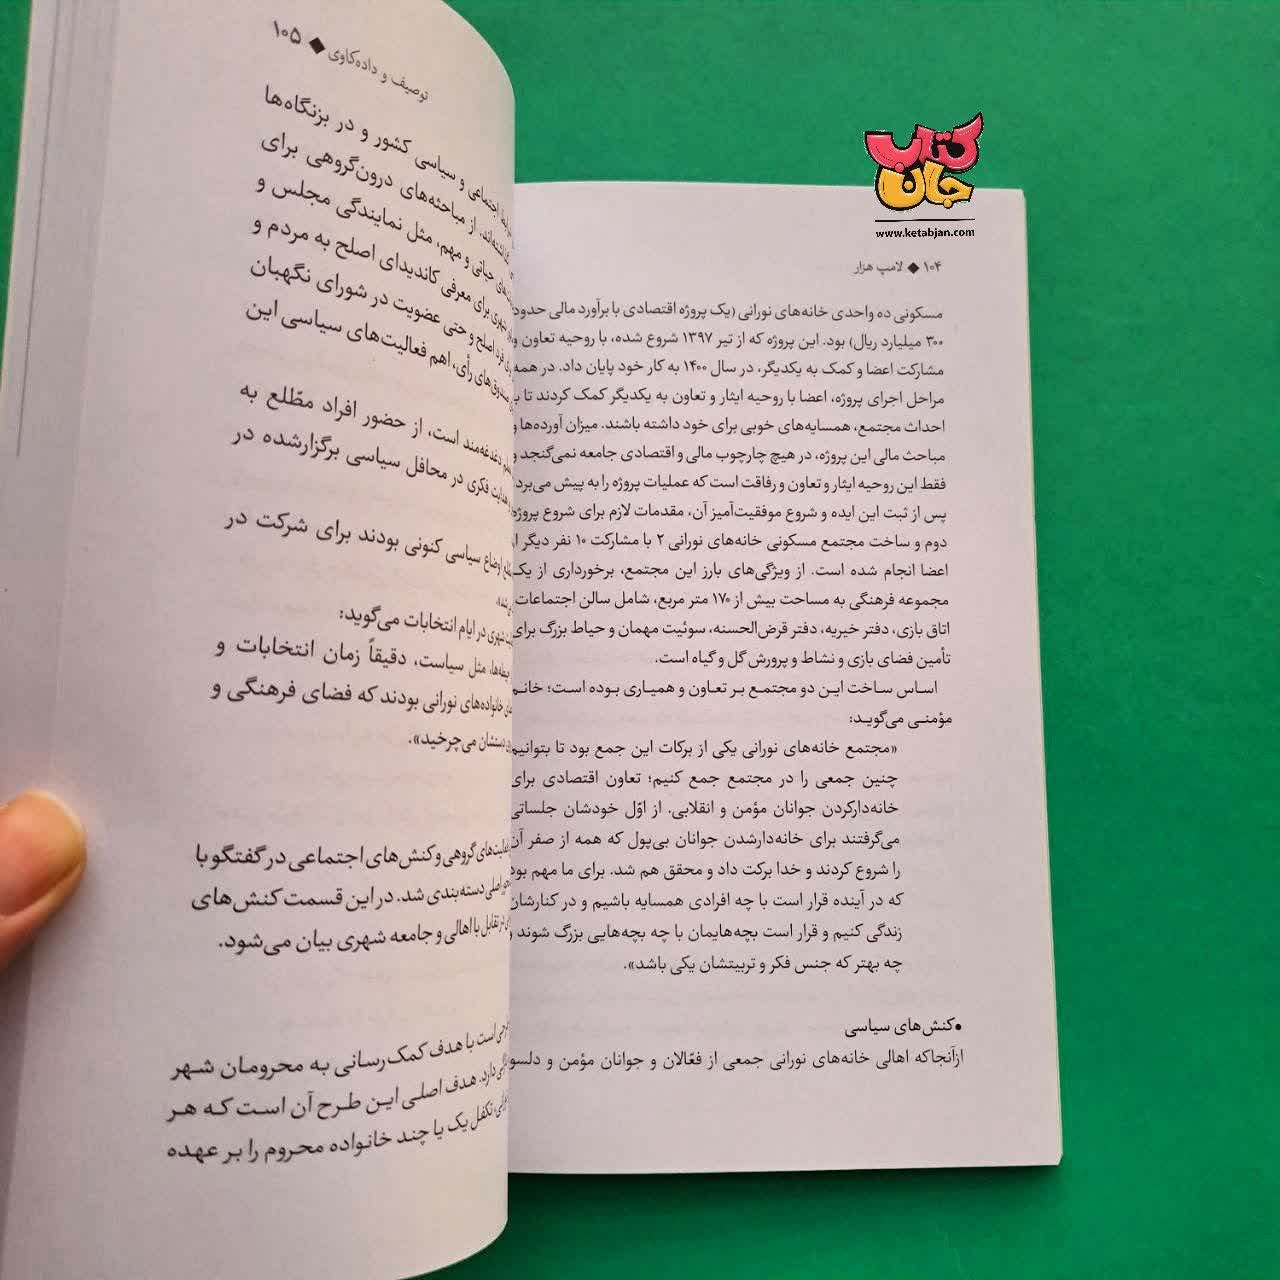 کتاب
جان
www.ketabjan.com
۱۰۴ ◆ لامپ هزار
مسکونی ده واحدی خانه‌های نورانی (یک پروژه اقتصادی با برآورد مالی حدود
۳۰۰ میلیارد ریال) بود. این پروژه که از تیر ۱۳۹۷ شروع شده، با روحیه تعاون و
مشارکت اعضا و کمک به یکدیگر، در سال ۱۴۰۰ به کار خود پایان داد. در همه
مراحل اجرای پروژه، اعضا با روحیه ایثار و تعاون به یکدیگر کمک کردند تا با
احداث مجتمع، همسایه‌های خوبی برای خود داشته باشند. میزان آورده‌ها و
مباحث مالی این پروژه، در هیچ چارچوب مالی و اقتصادی جامعه نمی‌گنجد و
فقط این روحیه ایثار و تعاون و رفاقت است که عملیات پروژه را به پیش می‌برد.
پس از ثبت این ایده و شروع موفقیت‌آمیز آن، مقدمات لازم برای شروع پروژه
دوم و ساخت مجتمع مسکونی خانه‌های نورانی ۲ با مشارکت ۱۰ نفر دیگر از
اعضا انجام شده است. از ویژگی‌های بارز این مجتمع، برخورداری از یک
مجموعه فرهنگی به مساحت بیش از ۱۷۰ متر مربع، شامل سالن اجتماعات،
اتاق بازی، دفتر خیریه، دفتر قرض‌الحسنه، سوئیت مهمان و حیاط بزرگ برای
تأمین فضای بازی و نشاط و پرورش گل و گیاه است.
اساس ساخت این دو مجتمع بر تعاون و همیاری بوده است؛ خانم
مؤمنی می‌گوید:
«مجتمع خانه‌های نورانی یکی از برکات این جمع بود تا بتوانیم
چنین جمعی را در مجتمع جمع کنیم؛ تعاون اقتصادی برای
خانه‌دارکردن جوانان مؤمن و انقلابی. از اوّل خودشان جلساتی
می‌گرفتند برای خانه‌دارشدن جوانان بی‌پول که همه از صفر آن
را شروع کردند و خدا برکت داد و محقق هم شد. برای ما مهم بود
که در آینده قرار است با چه افرادی همسایه باشیم و در کنارشان
زندگی کنیم و قرار است بچه‌هایمان با چه بچه‌هایی بزرگ شوند و
چه بهتر که جنس فکر و تربیتشان یکی باشد».
•کنش‌های سیاسی
ازآنجاکه اهالی خانه‌های نورانی جمعی از فعّالان و جوانان مؤمن و دلسو
توصیف و داده‌کاوی ◆ ۱۰۵
اجتماعی و سیاسی کشور و در بزنگاه‌ها
از مباحثه‌های درون‌گروهی برای
حیاتی و مهم، مثل نمایندگی مجلس و
شهری برای معرفی کاندیدای اصلح به مردم و
فرد اصلح و حتی عضویت در شورای نگهبان
صندوق‌های رأی، اهم فعالیت‌های سیاسی این
دغدغه‌مند است، از حضور افراد مطّلع به
هدایت فکری در محافل سیاسی برگزارشده در
اوضاع سیاسی کنونی بودند برای شرکت در
شهری در ایام انتخابات می‌گوید:
مثل سیاست، دقیقاً زمان انتخابات و
خانواده‌های نورانی بودند که فضای فرهنگی و
دستشان می‌چرخید».
گروهی و کنش‌های اجتماعی در گفتگو با
اصلی دسته‌بندی شد. در این قسمت کنش‌های
در تقابل با اهالی و جامعه شهری بیان می‌شود.
است با هدف کمک‌رسانی به محرومان شهر
دارد. هدف اصلی این طرح آن است که هر
تکفل یک یا چند خانواده محروم را بر عهده